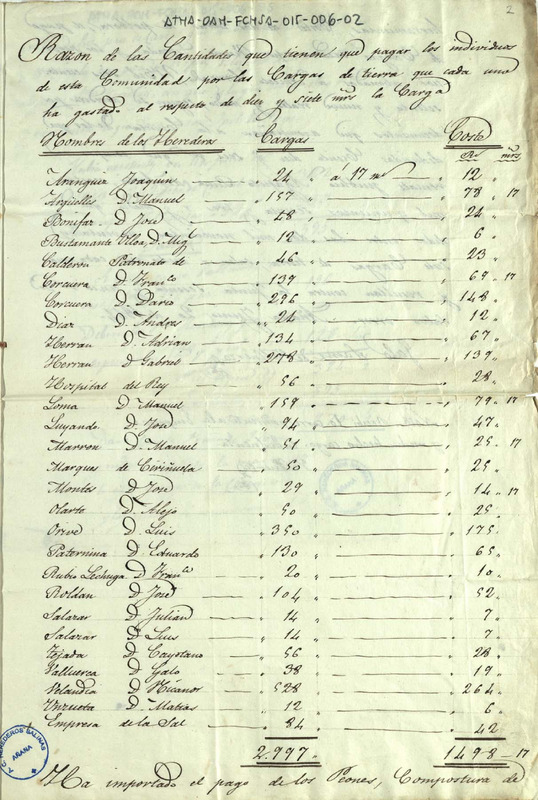 ATHA-DAH-FCHSA-015-006-02
2
Razon de las Cantidades que tienen que pagar los individuos
de esta Comunidad por las Cargas de tierra que cada uno
ha gastado al respecto de diez y siete mrs la Carga
Nombres de los Herederos Cargas Coste
Rs mrs
Aranguiz Joaquin 24 á 17 ms 12
Arguelles D. Manuel 157 78 17
Bonifaz D. José 48 24
Bustamante Ulloa D. Migl 12 6
Calderon Patronato de 46 23
Corcuera D. Franco 139 69 17
Corcuera D. Dario 296 148
Diaz D. Andres 24 12
Herran D. Adrian 134 67
Herran D. Gabriel 278 139
Hospital del Rey 56 28
Loma D. Manuel 159 79 17
Luyando D. José 94 47
Marron D. Manuel 51 25 17
Marques de Ciriñuela 50 25
Montes D. José 29 14 17
Olarte D. Alejo 50 25
Orive D. Luis 350 175
Paternina D. Eduardo 130 65
Rubio Lechuga D. Franco 20 10
Roldan D. José 104 52
Salazar D. Julian 14 7
Salazar D. Luis 14 7
Tejada D. Cayetano 56 28
Valluerca D. Galo 38 19
Velandia D. Nicanor 528 264
Vizueta D. Matias 12 6
Empresa de la Sal 84 42
2.997 1498 17
Ha importado el pago de los Peones, Compostura de
HEREDEROS SALINAS
AÑANA